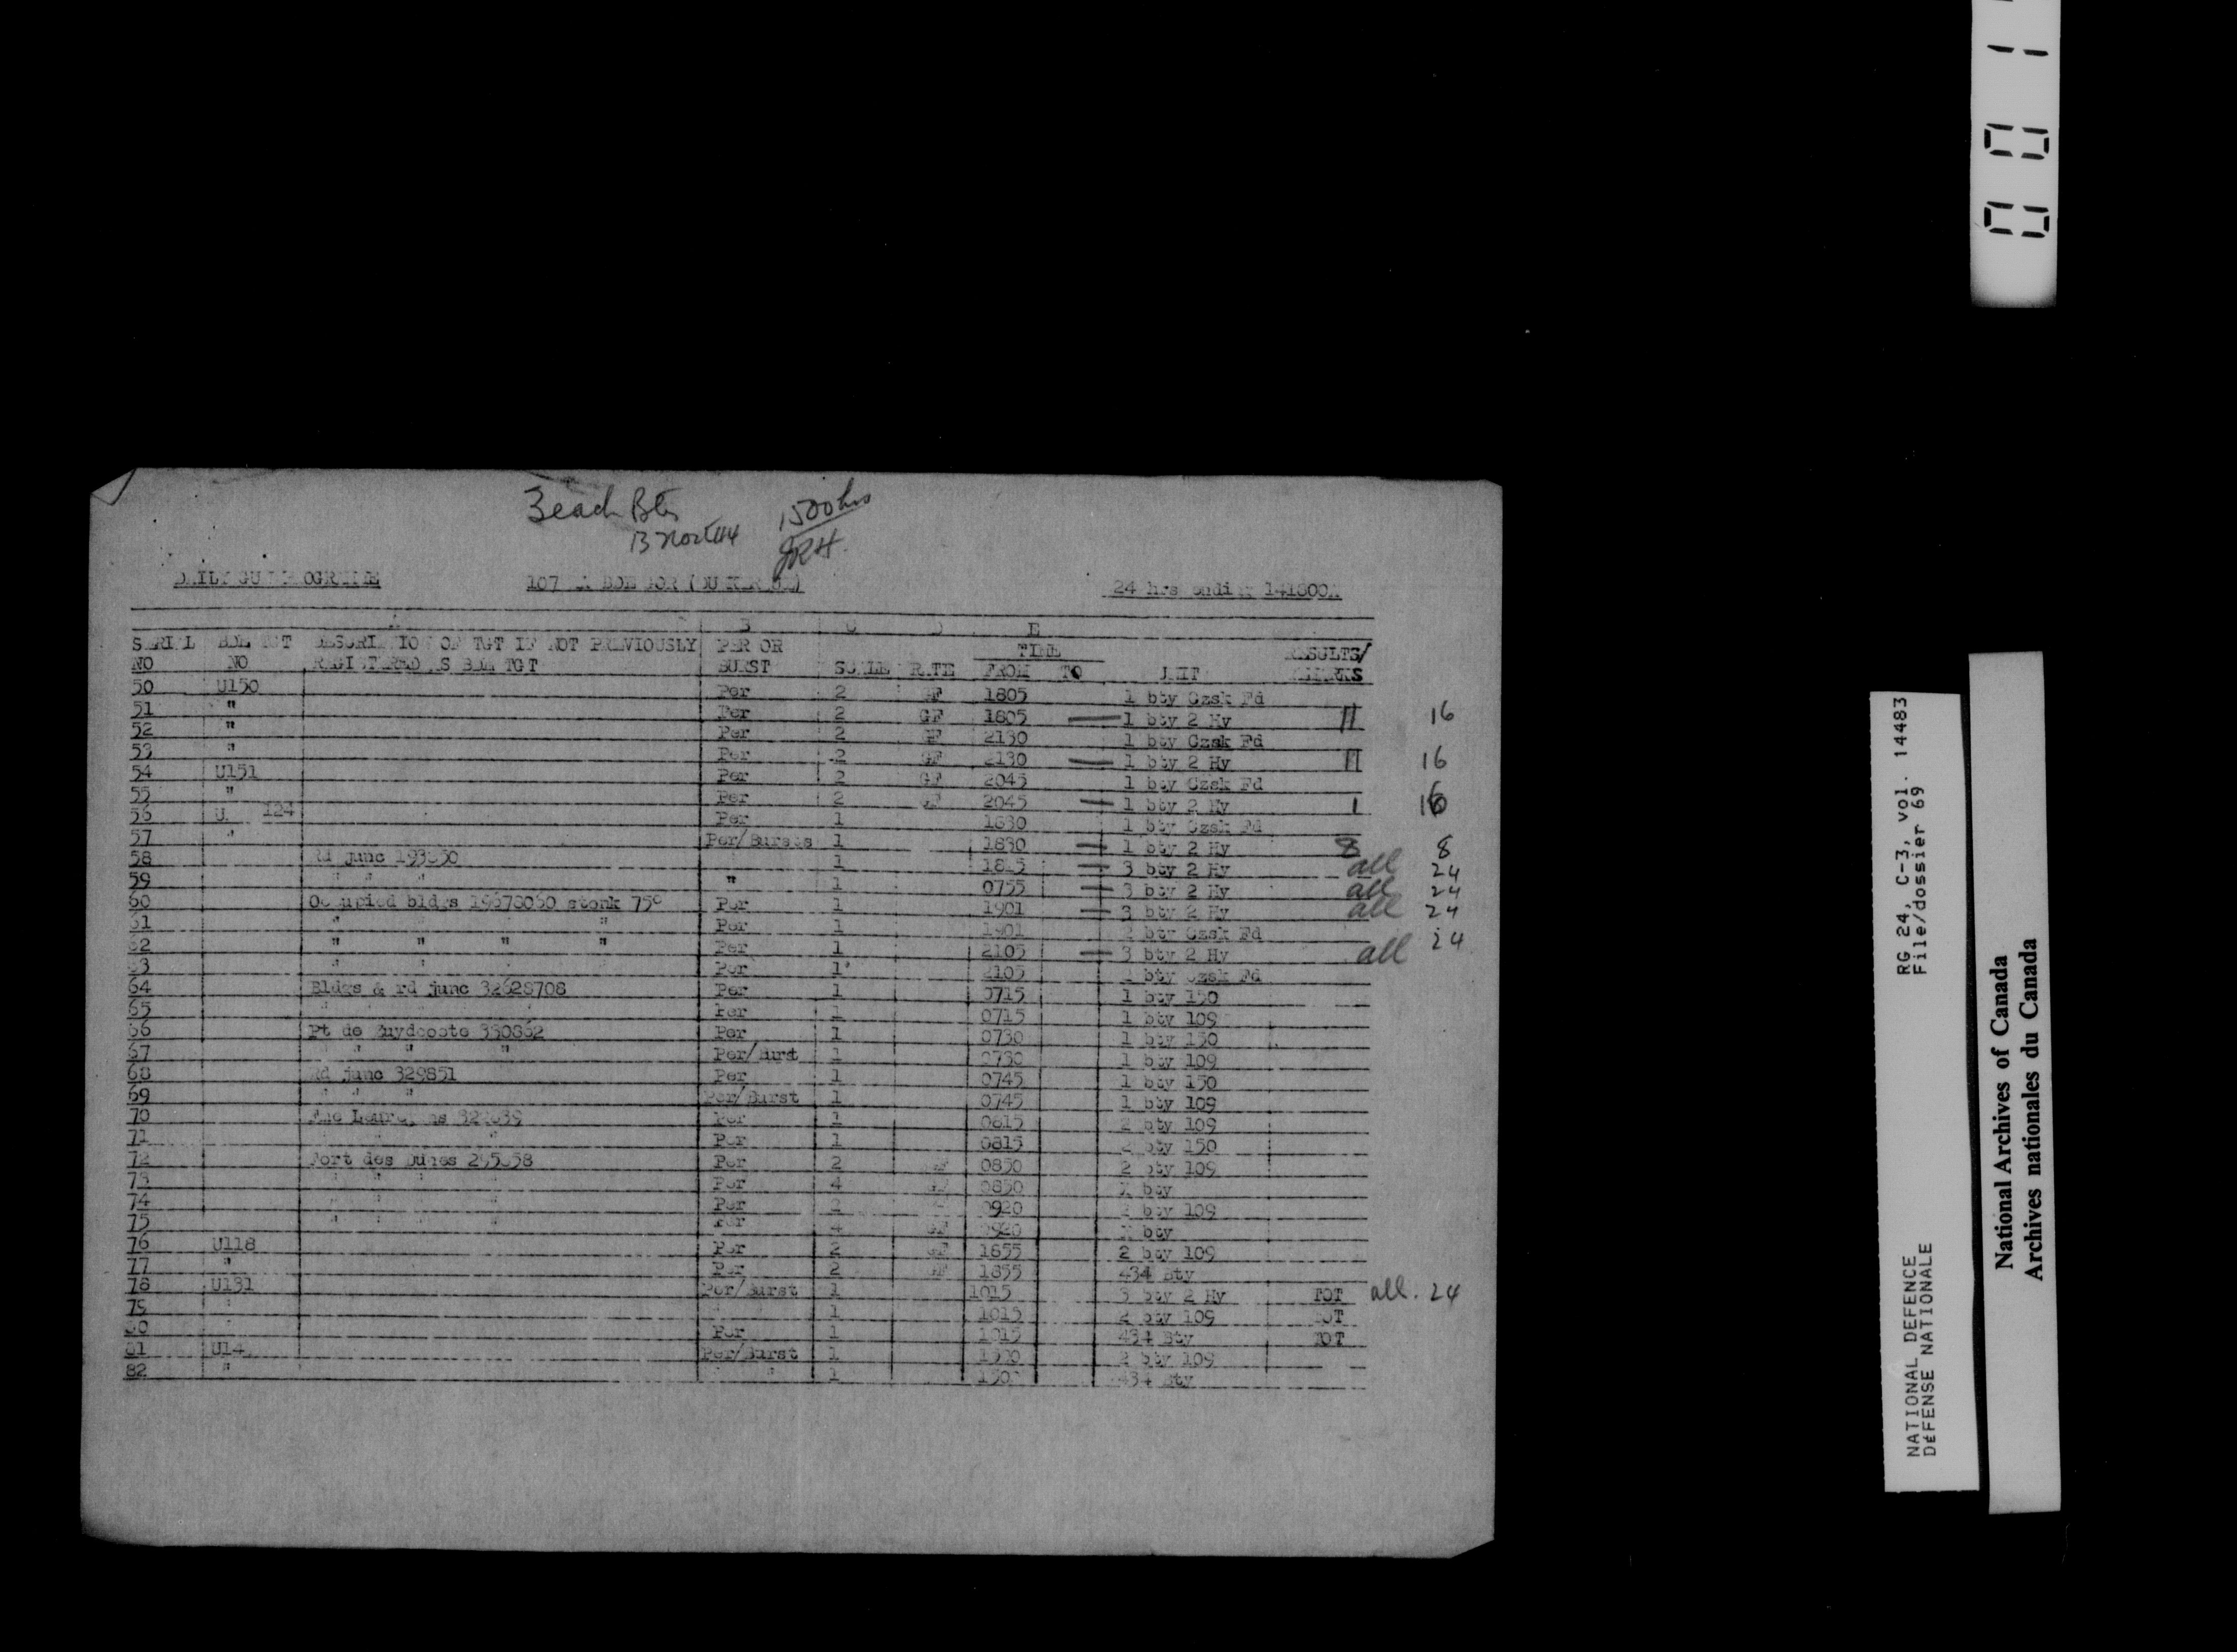 3 each Bty 1500 hrs
13 Nov 44 JRH.
107 BDE 24 hrs ending 141800
B C D E
SERIAL BDE TGT DESCRIPTION OF TGT IF NOT PREVIOUSLY PER OR TIME RESULTS/
NO NO REGISTERED AS BDE TGT BURST SCALE RATE FROM TO UNIT REMARKS
50 U150 Per 2 GF 1805 1 bty Czsk Fd
51 " Per 2 GF 1805 — 1 bty 2 Hy 16
52 " Per 2 GF 2130 1 bty Czsk Fd
53 " Per 2 GF 2130 — 1 bty 2 Hy 16
54 U151 Per 2 GF 2045 1 bty Czsk Fd
55 " Per 2 GF 2045 — 1 bty 2 Hy 1 16
56 U 124 Per 1 1830 1 bty Czsk Fd
57 " Per/Bursts 1 1830 — 1 bty 2 Hy 8 8
58 Rd junc 1 1815 — 3 bty 2 Hy all 24
59 " " " " 1 0755 — 3 bty 2 Hy all 24
60 Occupied bldgs stonk 75° Per 1 1901 — 3 bty 2 Hy all 24
61 " " Per 1 1901 2 bty Czsk Fd
62 " " " " Per 1 2105 — 3 bty 2 Hy all 24
63 " " " " Per 1 2105 bty Czsk Fd
64 Bldgs & rd junc 32628708 Per 1 0715 1 bty 150
65 Per 1 0715 1 bty 109
66 Pt de Zuydcoote 330862 Per 1 0730 1 bty 150
67 " " " Per/Burst 1 0730 1 bty 109
68 Rd junc 329851 Per 1 0745 1 bty 150
69 " " " Per/Burst 1 0745 1 bty 109
70 Per 1 0815 2 bty 109
71 " Per 1 0815 2 bty 150
72 Fort des Dunes 295858 Per 2 GF 0850 2 bty 109
73 " " " " Per 4 GF 0850 bty
74 " " " " Per 2 0920 2 bty 109
75 " " " " Per 4 GF 0920 bty
76 U118 Per 2 GF 1655 2 bty 109
77 " Per 2 GF 1655 434 Bty
78 U131 Per/Burst 1 1015 3 bty 2 Hy TOT all. 24
79 " 1 1015 2 bty 109 TOT
80 " Per 1 1015 434 Bty TOT
81 Per/Burst 1 2 bty 109
82 " " 1 434 Bty
0 0 1
RG 24, C-3, vol. 14483
File/dossier 69
NATIONAL DEFENCE
DÉFENSE NATIONALE
National Archives of Canada
Archives nationales du Canada